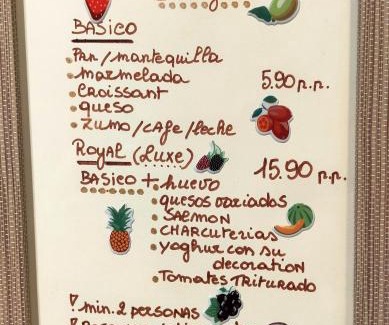 BASICO
Pan/mantequilla
marmelada
Croissant
queso
5.90 p.p.
zumo/cafe/leche
Royal (Luxe)
15.90 p.p.
BASICO + huevo
quesos variados
SALMON
CHARCUTERIAS
yoghur con su
decoration
Tomates Triturado
min. 2 PERSONAS